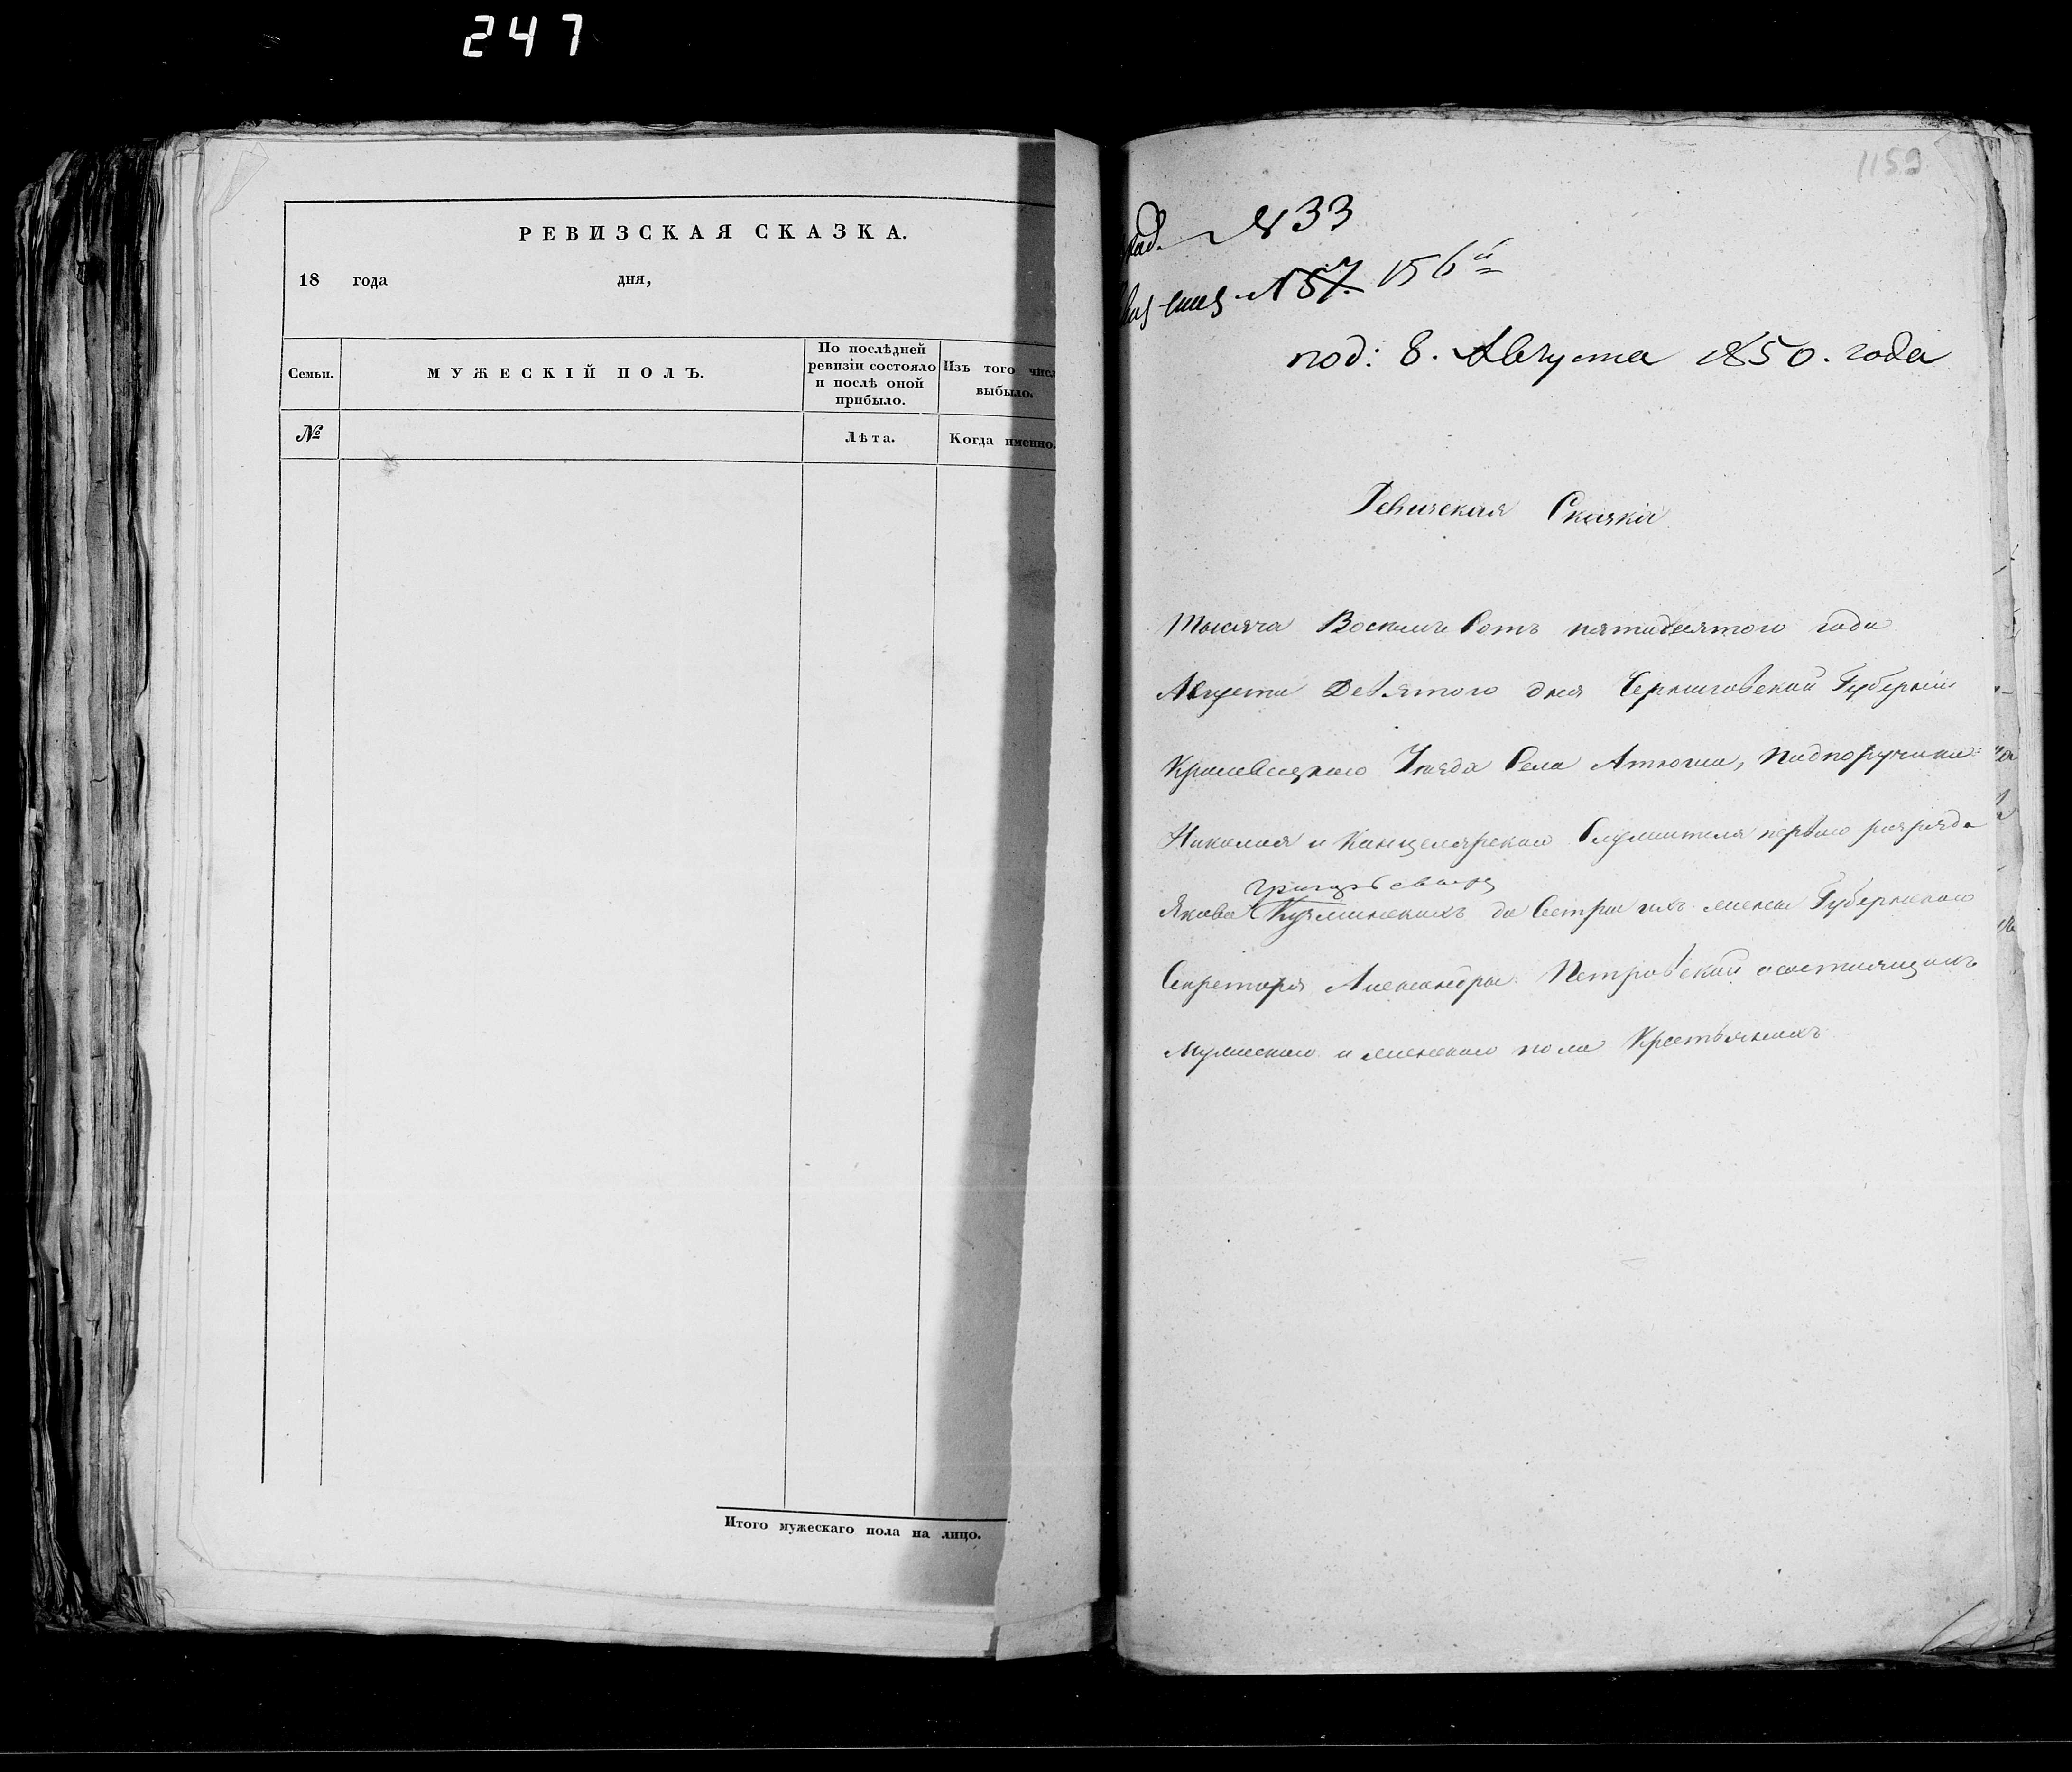 247
РЕВИЗСКАЯ СКАЗКА.
18 года дня,
Семьи.
МУЖЕСКІЙ ПОЛЪ.
По послѣдней
ревизіи состояло
и послѣ оной
прибыло.
Изъ того числа
выбыло.
№
Лѣта.
Когда именно.
Итого мужескаго пола на лицо.
1152
№ 33
№ 57. 156й
под: 8. Августа 1850. года
Ревизская Сказка
Тысяча Восемь Сотъ пятидесятого года
Августа Девятого дня Черниговской Губерніи
Кролевецкого Уезда Села Атюши, Подпоручика
Николая и Канцелярского Служителя первого розряда
Григорьевыхъ
Якова Кузминскихъ да Сестры ихъ жены Губернского
Секретаря Александры Петровской о состоящихъ
Мужеского и женского пола Крестьянахъ